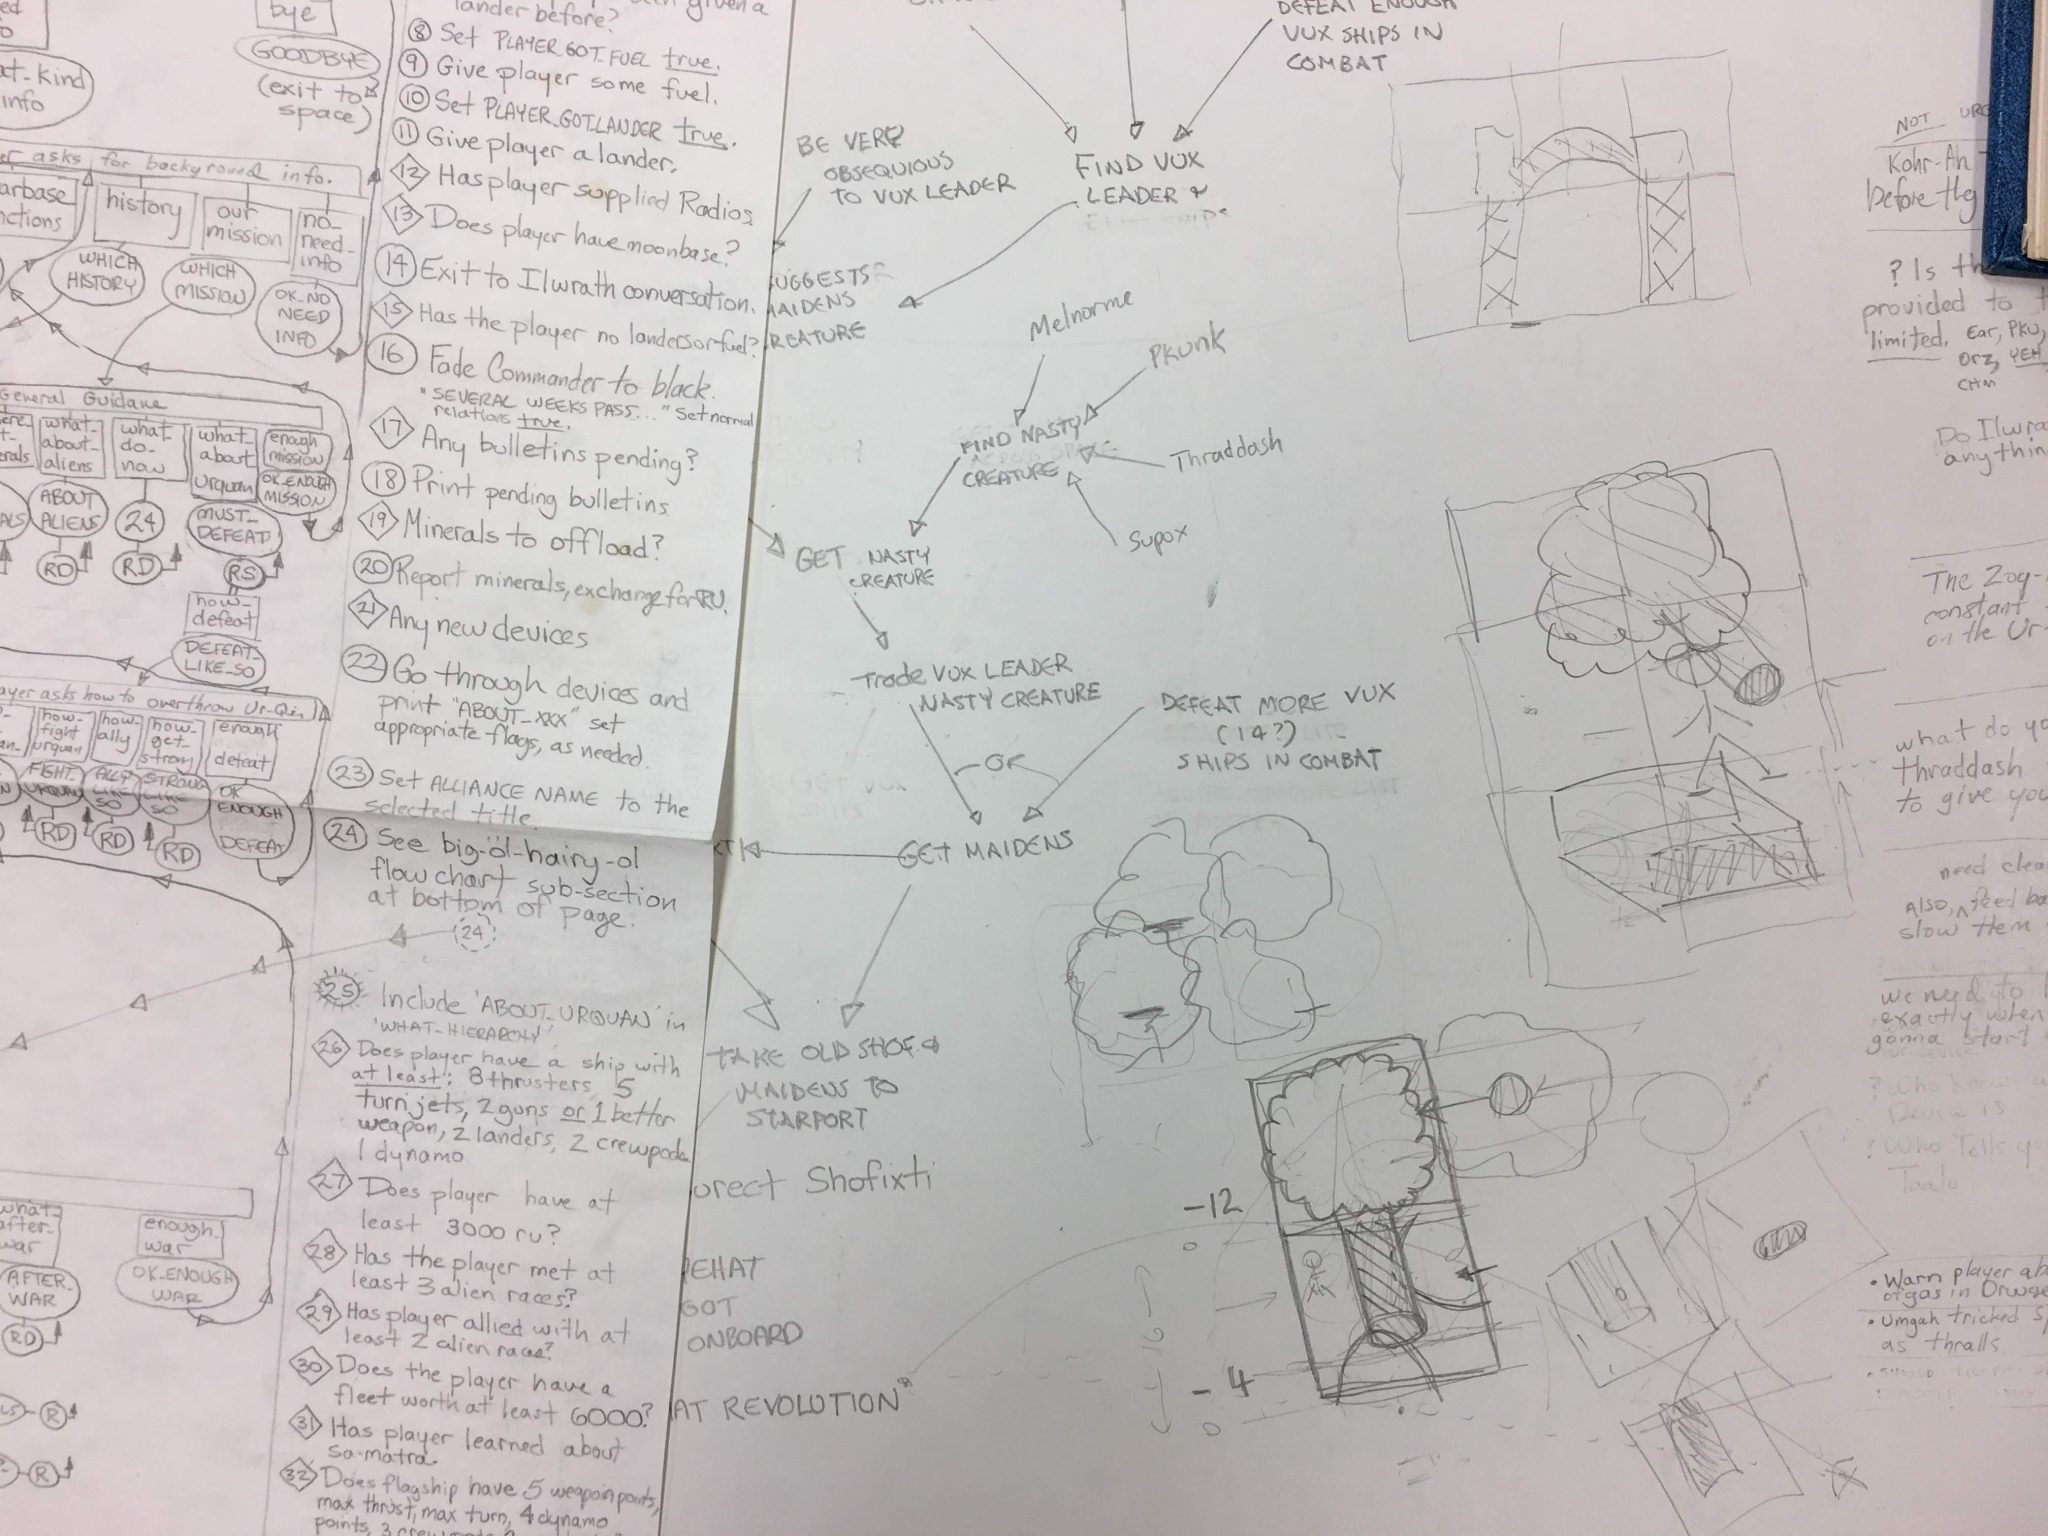 bye
GOODBYE
(exit to
space)
kind
info
asks for background info.
history
our
mission
no_
need_
info
WHICH
HISTORY
WHICH
MISSION
OK_NO
NEED
INFO
General Guidane
what_
about_
aliens
what_
do_
now
what_
about_
urquan
enough
mission
ABOUT
ALIENS
24
MUST_
DEFEAT
OK_ENOUGH
MISSION
RD
RD
RS
how_
defeat
DEFEAT_
LIKE_SO
asks how to overthrow Ur-Quan
how_
fight
urquan
how_
ally
how_
get_
strong
enough
defeat
FIGHT_
URQUAN
ALLY
LIKE
SO
STRONG
LIKE
SO
OK
ENOUGH
DEFEAT
RD
RD
RD
what_
after_
war
enough_
war
AFTER_
WAR
OK_ENOUGH
WAR
RD
R
R
given a
lander before?
8 Set PLAYER_GOT_FUEL true.
9 Give player some fuel.
10 Set PLAYER_GOT_LANDER true.
11 Give player a lander.
12 Has player supplied Radios
13 Does player have moonbase?
14 Exit to Ilwrath conversation.
15 Has the player no landers or fuel?
16 Fade Commander to black.
"SEVERAL WEEKS PASS..." Set normal
relations true.
17 Any bulletins pending?
18 Print pending bulletins
19 Minerals to offload?
20 Report minerals, exchange for RU.
21 Any new devices
22 Go through devices and
print "ABOUT_XXX" set
appropriate flags, as needed.
23 Set ALLIANCE NAME to the
selected title.
24 See big-ol-hairy-ol
flow chart sub-section
at bottom of page.
24
25 Include 'ABOUT_URQUAN' in
'WHAT_HIERARCHY'
26 Does player have a ship with
at least: 8 thrusters, 5
turnjets, 2 guns or 1 better
weapon, 2 landers, 2 crewpods
1 dynamo
27 Does player have at
least 3000 ru?
28 Has the player met at
least 3 alien races?
29 Has player allied with at
least 2 alien races?
30 Does the player have a
fleet worth at least 6000?
31 Has player learned about
Sa-matra.
32 Does flagship have 5 weapon points,
max thrust, max turn, 4 dynamo
points, 3
DEFEAT ENOUGH
VUX SHIPS IN
COMBAT
BE VERY
OBSEQUIOUS
TO VUX LEADER
FIND VUX
LEADER &
UGGESTS
MAIDENS
CREATURE
Melnorme
Pkunk
FIND NASTY
CREATURE
Thraddash
Supox
GET NASTY
CREATURE
Trade VUX LEADER
NASTY CREATURE
DEFEAT MORE VUX
(14?)
SHIPS IN COMBAT
OR
GET MAIDENS
TAKE OLD SHOF. &
MAIDENS TO
STARPORT
urect Shofixti
EHAT
GOT
ONBOARD
AT REVOLUTION*
-12
0
16
-4
0
NOT
Kohr-Ah
before they
? Is
provided to
limited. Ear, PKU,
Orz, YEH,
CHM
Do Ilwra
anythin
The Zoq-
constant
on the Ur-
what do yo
thraddash
to give you
need clea
Also, feed ba
slow them
we need to
exactly when
gonna start
? Who knows
Device is
? Who tells yo
Taalo
• Warn player ab
of gas in
• Umgah tricked
as thralls.